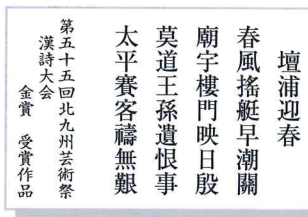 壇浦迎春
春風搖艇早潮關
廟宇樓門映日殷
莫道王孫遺恨事
太平賽客禱無艱
第五十五回北九州芸術祭
漢詩大会
金賞　受賞作品